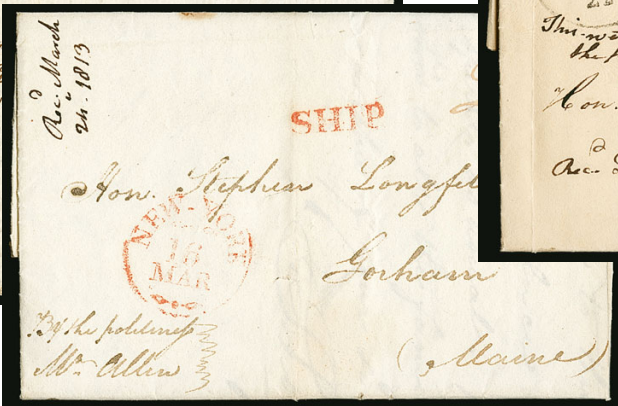 Rec.d March
24. 1813
SHIP
Hon. Stephen Longfel
NEW-YORK
18
MAR
Gorham
By the politeness
Mr. Allen
(Maine)
This
the
Hon.
Rec.d